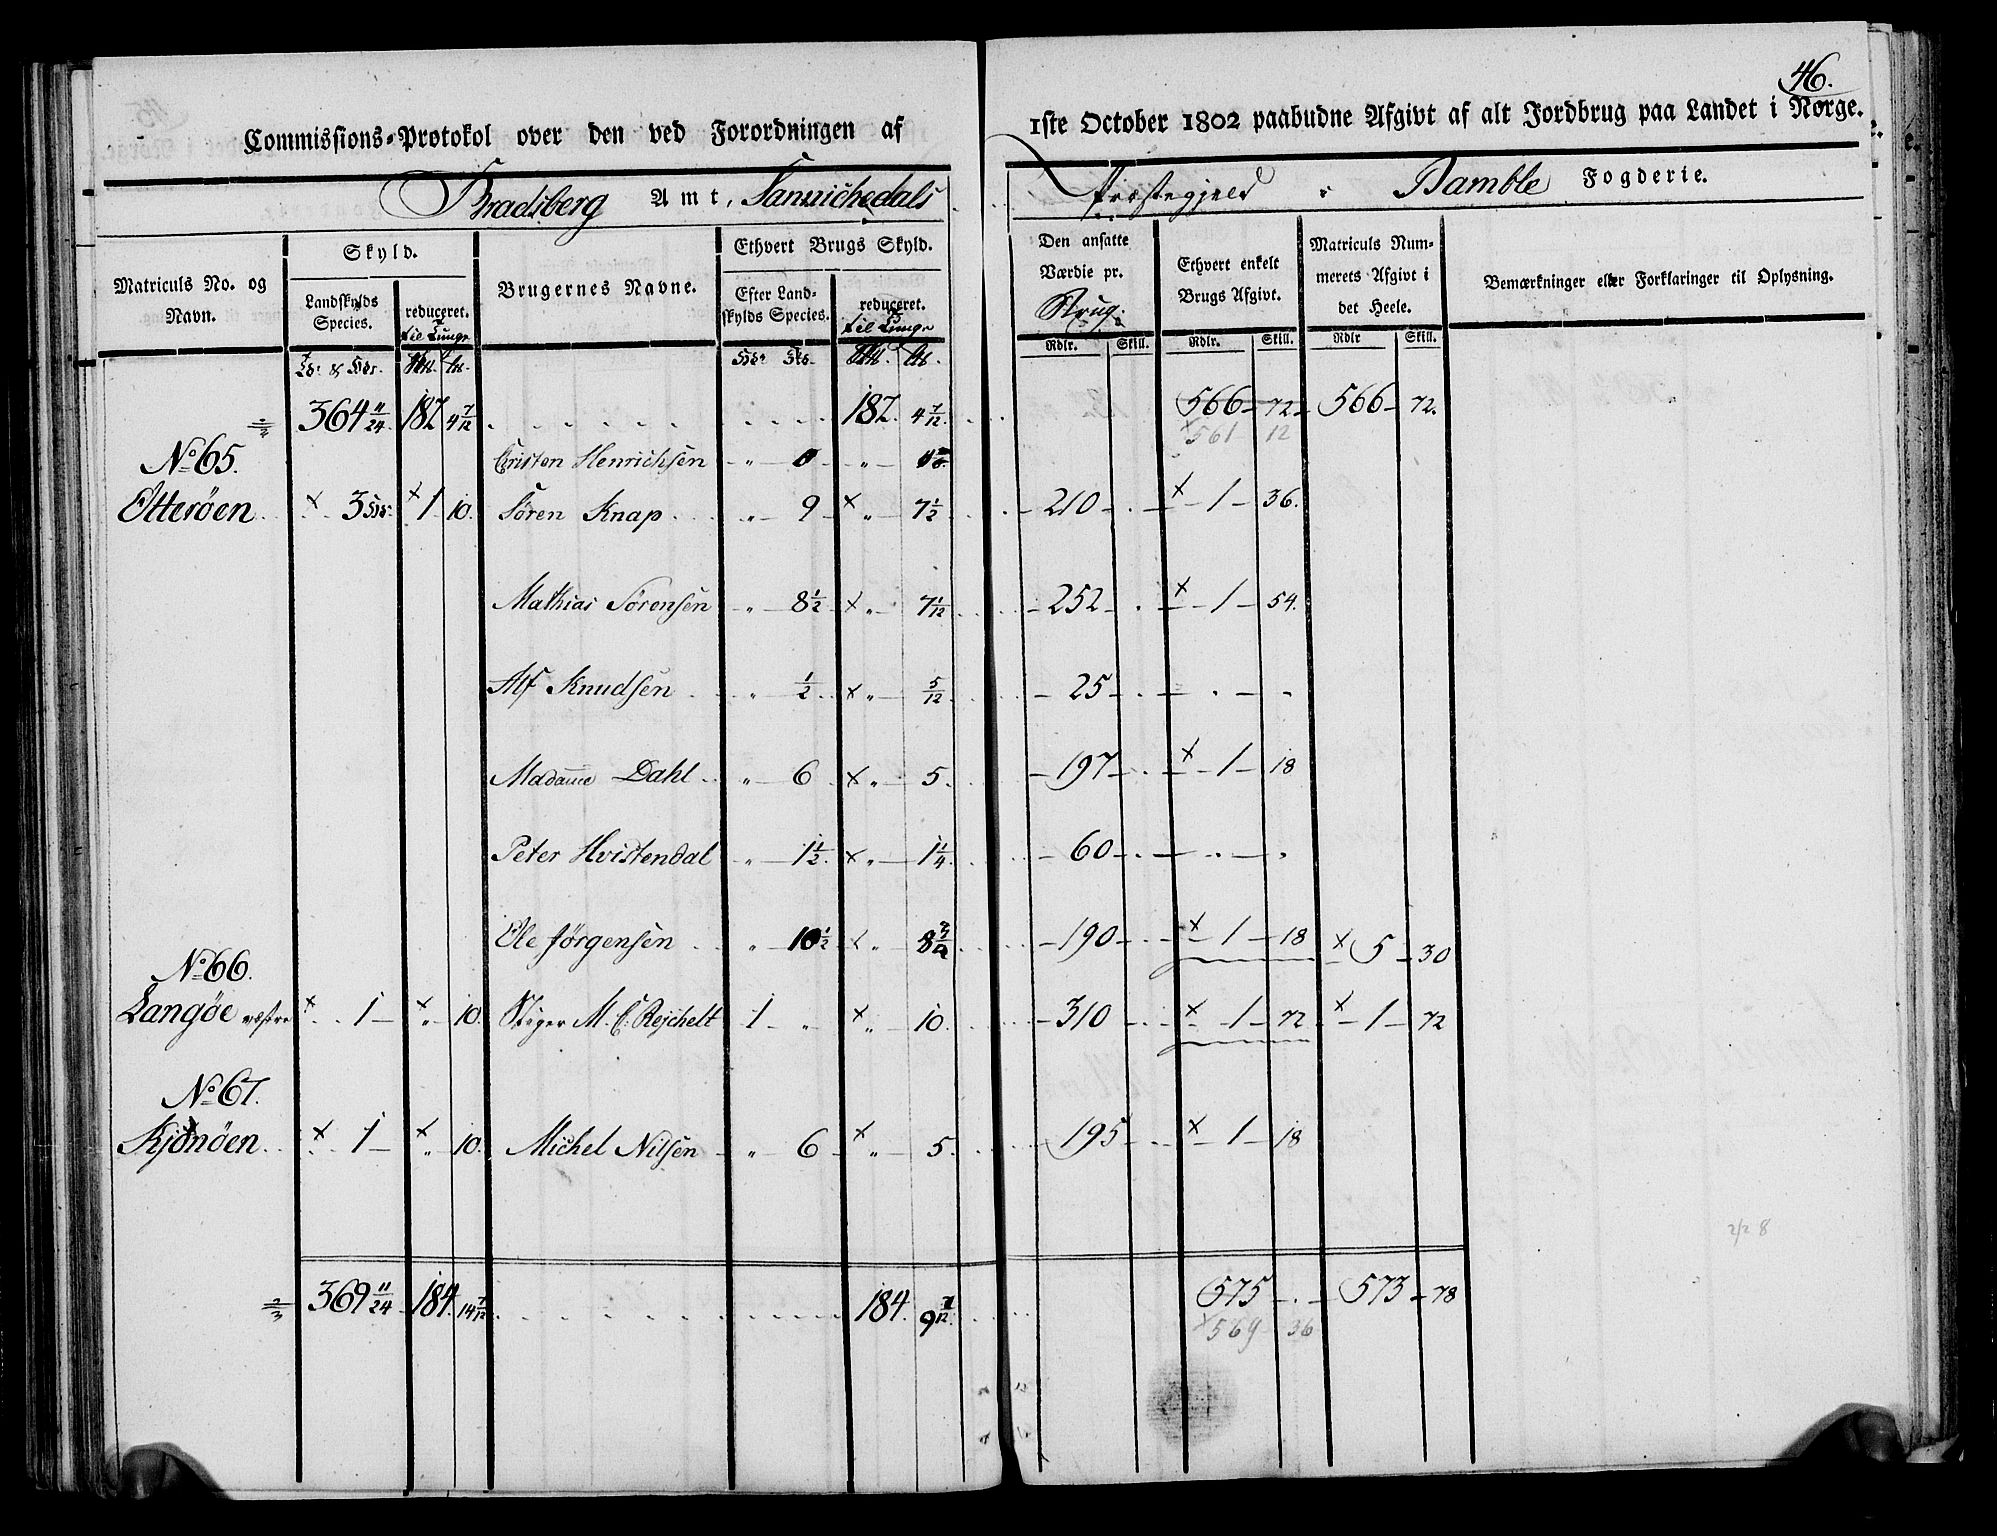 46.
Commissions-Protokol over den ved Forordningen af 1ste October 1802 paabudne Afgivt af alt Jordbrug paa Landet i Norge.
Bradsberg Amt, Sannichedals Præstegjeld i Bamble Fogderie.
Matriculs No. og Navn.
Skyld.
Landskylds Species.
reduceret. til Tunge
Brugernes Navne.
Ethvert Brugs Skyld.
Efter Landskylds Species.
reduceret. til Tunge
Den ansatte Værdie pr. Brug.
Ethvert enkelt Brugs Afgivt.
Matriculs Nummerets Afgivt i det Heele.
Bemærkninger eller Forklaringer til Oplysning.
Rdlr. Skill. Rdlr. Skill. Rdlr Skill.
364 11/24 187 4 7/12 187. 4 7/12 566 72 566 72.
561 12
No 65. Cristen Henrichsen
Otterøen 3 1 10. Søren Knap 9 7 1/2 210 1 36.
Mathias Sørensen 8 1/2 7 1/12 252 1 54.
Alf Knudsen 1/2 5/12 25
Madame Dahl 6 5. 197 1 18
Peter Hvistendal 1 1/2 1 1/4 60
Ole Jørgensen 10 1/2 8 190 1 18 5 30
No 66.
Langøe vestre 1 10. Stiger M. C. Rejchelt 1 10. 310 1 72 1 72
No 67.
Kjønøen 1 10. Michel Nilsen 6 5. 195 1 18
369 11/24 184. 14 7/12 184. 9 7/12 575 573 78
569 36
2/2 8